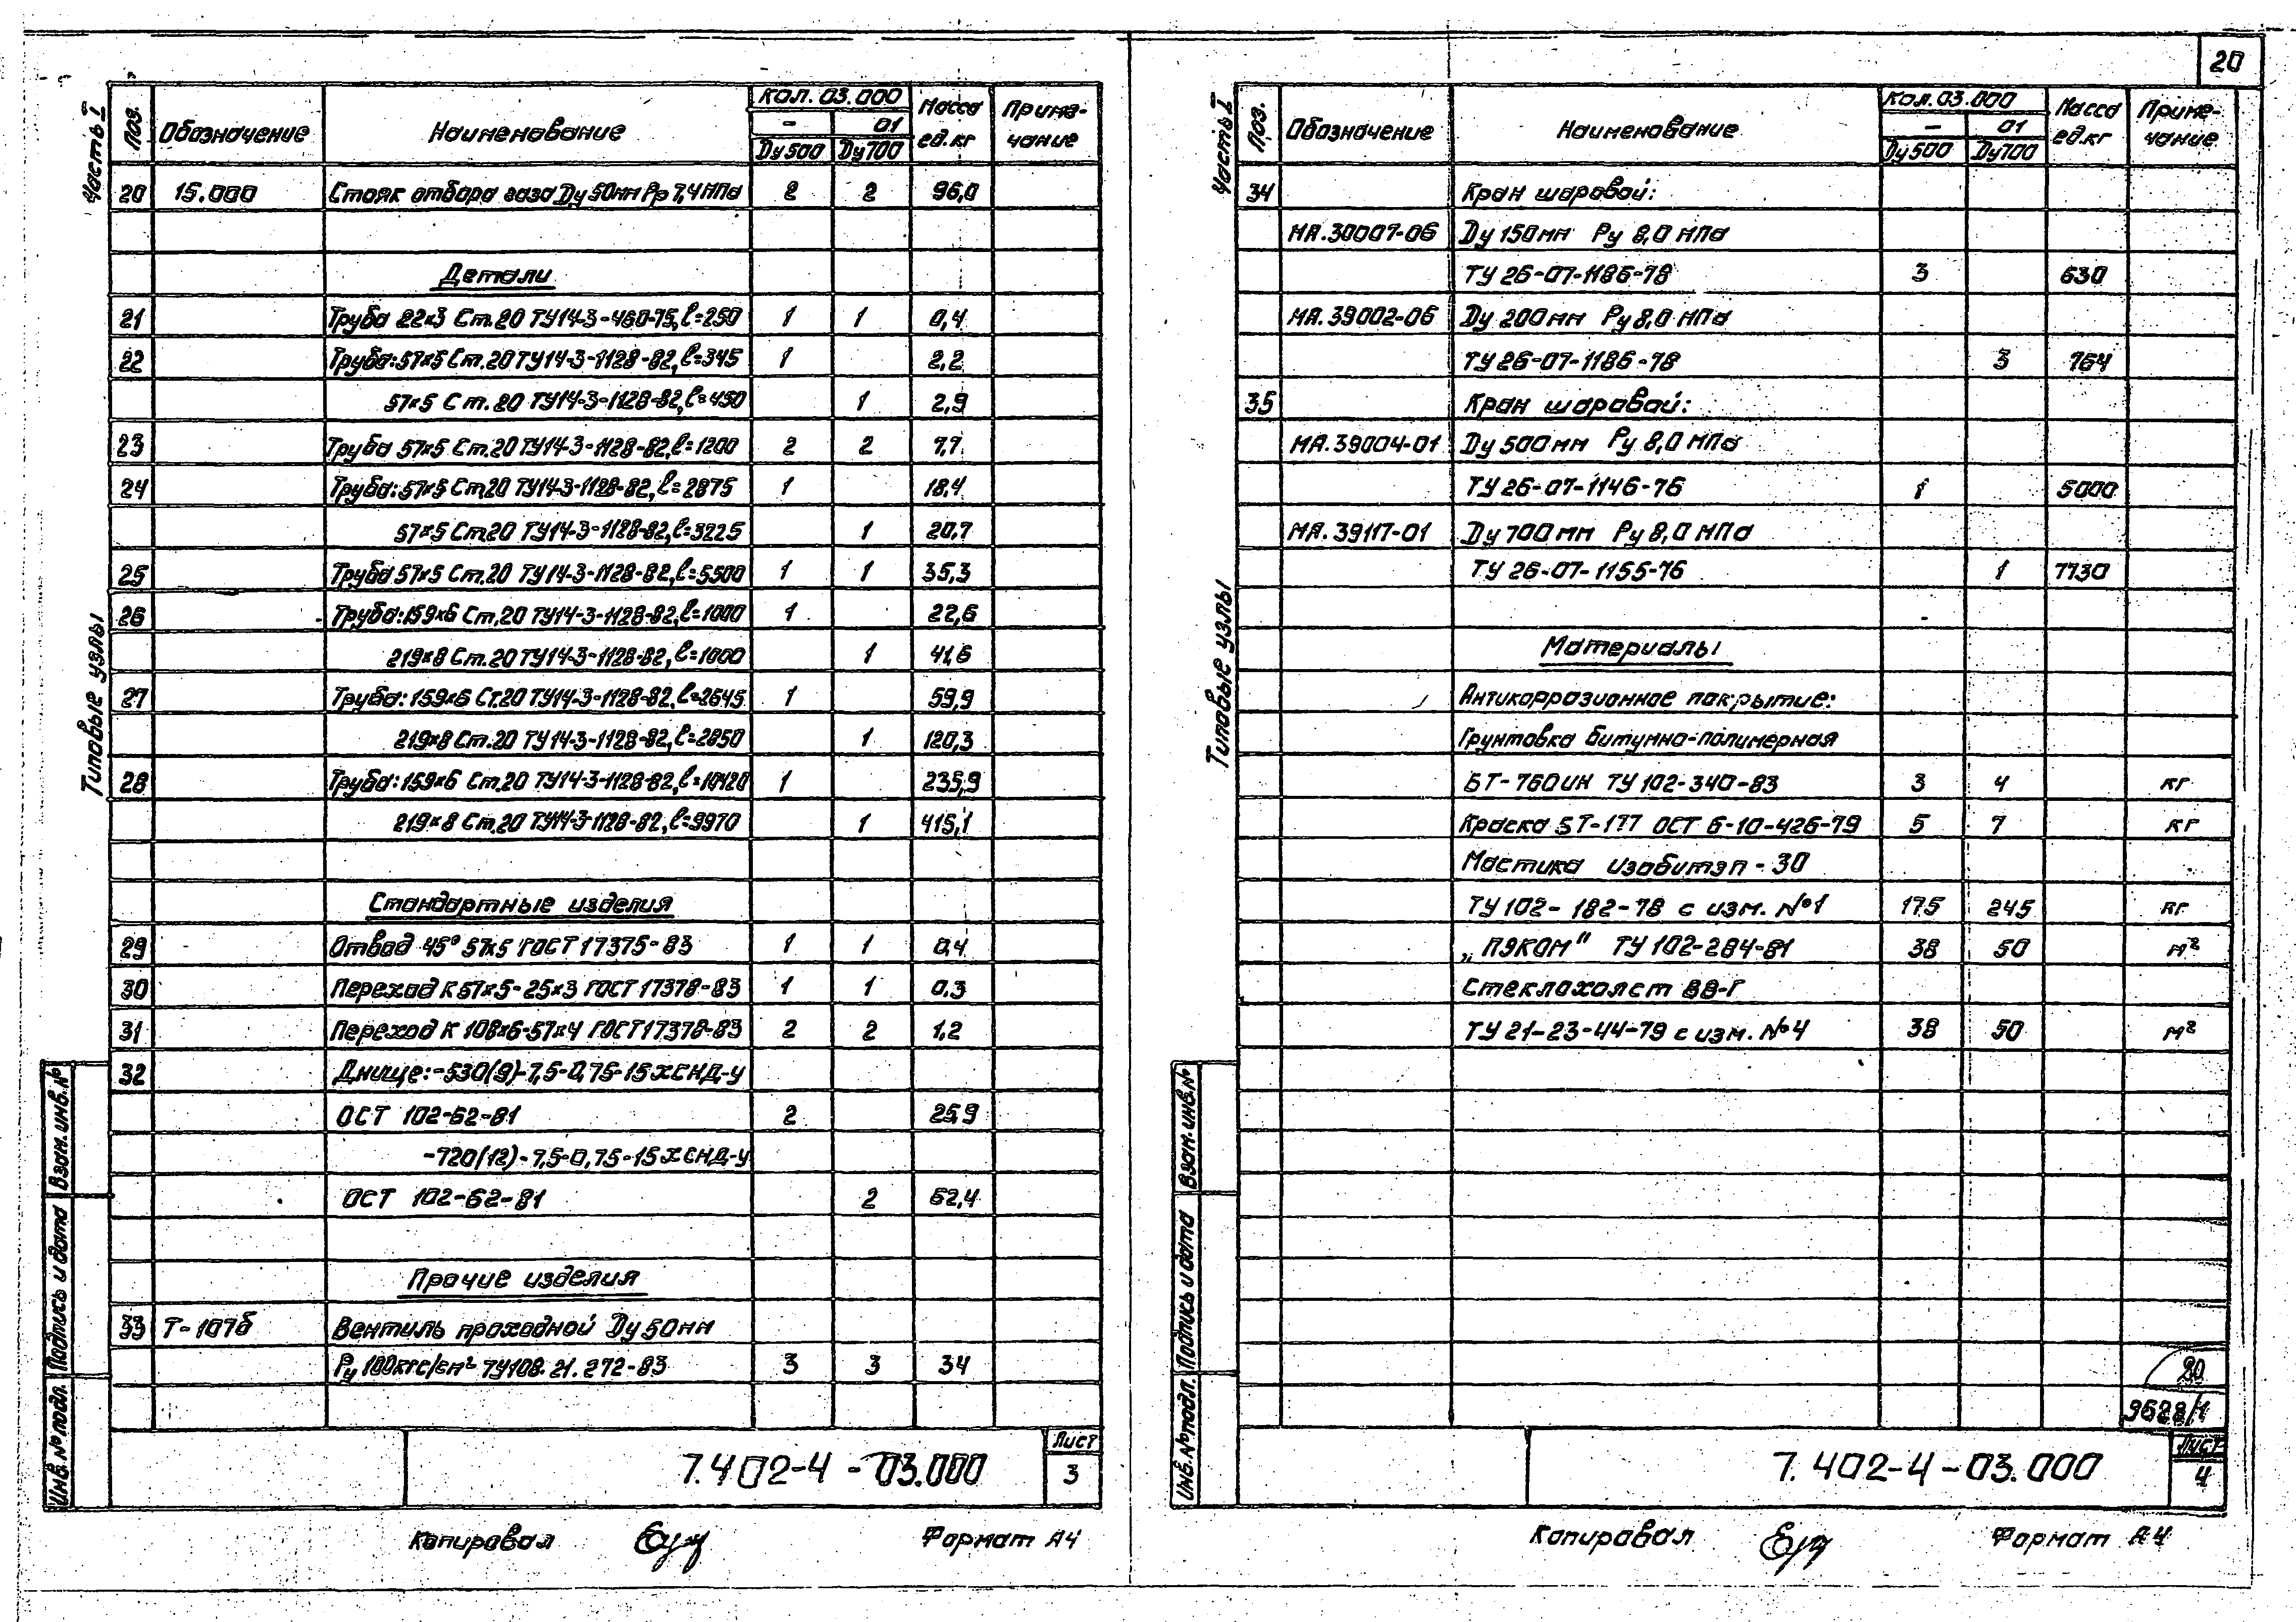 20
Часть I
Типовые узлы
Поз. Обозначение Наименование Кол. 03.000 Масса ед.кг Приме-чание
- 01
Ду500 Ду700
20 15.000 Стояк отбора газа Ду 50мм Рр 7,4 МПа 2 2 96,0
Детали
21 Труба 22х3 Ст.20 ТУ14-3-460-75, ℓ=250 1 1 0,4
22 Труба: 57х5 Ст.20 ТУ14-3-1128-82, ℓ=345 1 2,2
57х5 Ст.20 ТУ14-3-1128-82, ℓ=450 1 2,9
23 Труба 57х5 Ст.20 ТУ14-3-1128-82, ℓ=1200 2 2 7,7
24 Труба: 57х5 Ст.20 ТУ14-3-1128-82, ℓ=2875 1 18,4
57х5 Ст.20 ТУ14-3-1128-82, ℓ=3225 1 20,7
25 Труба 57х5 Ст.20 ТУ14-3-1128-82, ℓ=5500 1 1 35,3
26 Труба: 159х6 Ст.20 ТУ14-3-1128-82, ℓ=1000 1 22,6
219х8 Ст.20 ТУ14-3-1128-82, ℓ=1000 1 41,6
27 Труба: 159х6 Ст.20 ТУ14-3-1128-82, ℓ=2645 1 59,9
219х8 Ст.20 ТУ14-3-1128-82, ℓ=2850 1 120,3
28 Труба: 159х6 Ст.20 ТУ14-3-1128-82, ℓ=10420 1 235,9
219х8 Ст.20 ТУ14-3-1128-82, ℓ=9970 1 415,1
Стандартные изделия
29 Отвод 45° 57х5 ГОСТ 17375-83 1 1 0,4
30 Переход К 57х5-25х3 ГОСТ 17378-83 1 1 0.3
31 Переход К 108х6-57х4 ГОСТ 17378-83 2 2 1,2
32 Днище: -530(9)-7,5-0,75-15ХСНД-У
ОСТ 102-62-81 2 25,9
-720(12)-7,5-0,75-15ХСНД-У
ОСТ 102-62-81 2 62,4
Прочие изделия
33 Т-107б Вентиль проходной Ду 50мм
Ру 100кгс/см² ТУ108.21.272-83 3 3 34
Взам. инв.№
Подпись и дата
Инв.№ подл.
7.402-4-03.000 Лист 3
Копировал Формат А4
Часть I
Типовые узлы
Поз. Обозначение Наименование Кол. 03.000 Масса ед.кг Приме-чание
- 01
Ду500 Ду700
34 Кран шаровой:
МА.30007-06 Ду 150мм Ру 8,0 МПа
ТУ 26-07-1186-78 3 630
МА.39002-06 Ду 200мм Ру 8,0 МПа
ТУ 26-07-1186-78 3 764
35 Кран шаровой:
МА.39004-01 Ду 500мм Ру 8,0 МПа
ТУ 26-07-1146-76 1 5000
МА.39117-01 Ду 700мм Ру 8,0 МПа
ТУ 26-07-1155-76 1 7730
Материалы
Антикоррозионное покрытие:
Грунтовка битумно-полимерная
БТ-760ИН ТУ 102-340-83 3 4 кг
Краска БТ-177 ОСТ 6-10-426-79 5 7 кг
Мастика изобитэп-30
ТУ 102-182-78 с изм. №1 175 245 кг
„ПЭКОМ" ТУ 102-284-81 38 50 м²
Стеклохолст ВВ-Г
ТУ 21-23-44-79 с изм. №4 38 50 м²
Взам. инв.№
Подпись и дата
Инв.№ подл.
20
9628/1
7.402-4-03.000 Лист 4
Копировал Формат А4